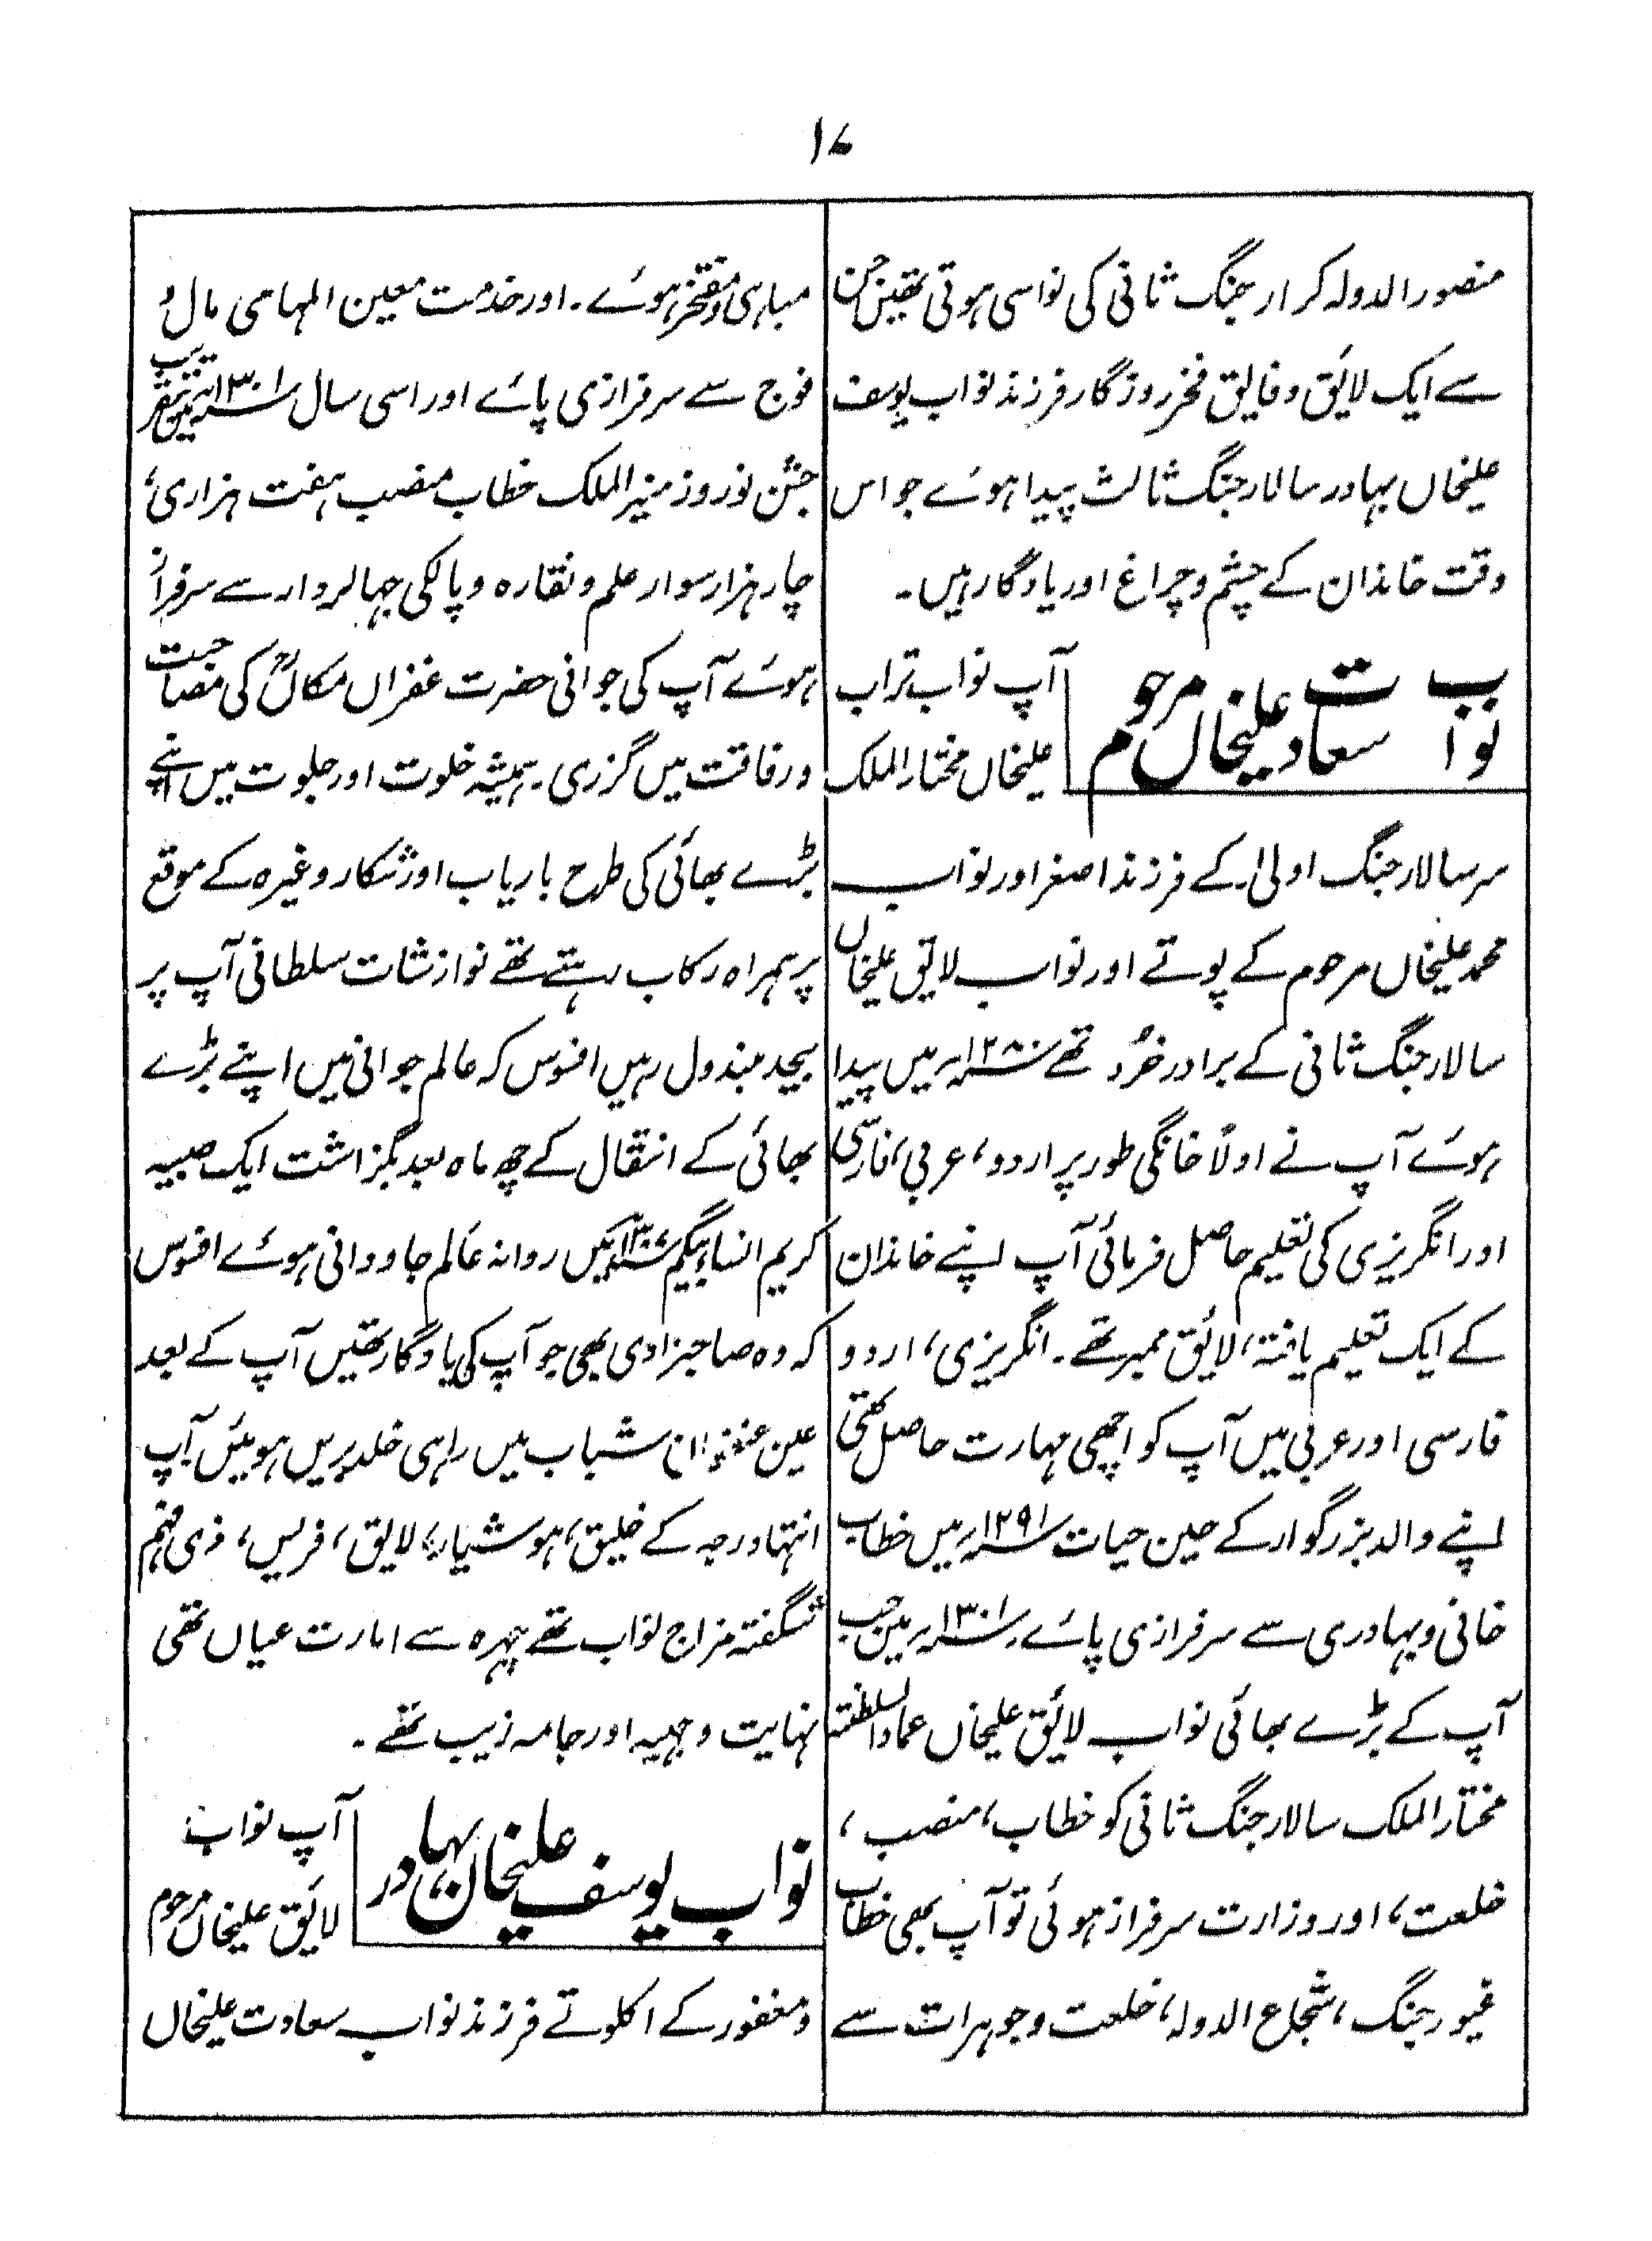 ۱۷
منصور الدولہ کرار جنگ ثانی کی نواسی ہوتی تھیں جن
سے ایک لائق و فایق فخر روزگار فرزند نواب یوسف
علیخاں بہادر سالار جنگ ثالث پیدا ہوئے جو اس
وقت خاندان کے چشم و چراغ اور یادگار ہیں۔
نواب سعادت علیخاں مرحوم
آپ نواب تراب
علیخاں مختار الملک
سر سالار جنگ اولیٰ کے فرزند اصغر اور نواب
محمد علیخاں مرحوم کے پوتے اور نواب لایق علیخاں
سالار جنگ ثانی کے برادر خرُد تھے ۱۲۸۰ھ میں پیدا
ہوئے آپ نے اولاً خانگی طور پر اردو، عربی، فارسی
اور انگریزی کی تعلیم حاصل فرمائی آپ اپنے خاندان
کے ایک تعلیم یافتہ، لائق ممبر تھے۔ انگریزی، اردو
فارسی اور عربی میں آپ کو اچھی مہارت حاصل تھی
اپنے والد بزرگوار کے حین حیات ۱۲۹۱ھ میں خطاب
خانی و بہادری سے سرفرازی پائے۔ ۱۳۰۱ھ میں جب
آپ کے بڑے بھائی نواب لائق علیخاں عماد السلطنتہ
مختار الملک سالار جنگ ثانی کو خطاب، منصب،
خلعت، اور وزارت سرفراز ہوئی تو آپ بھی خطاب
غیور جنگ، شجاع الدولہ، خلعت و جوہرات سے
مباہی و مفتخر ہوئے۔ اور خدمت معین المہامی مال و
فوج سے سرفرازی پائے اور اسی سال ۱۳۰۱ھ میں بتقریب
جشن نوروز منیر الملک خطاب منصب ہفت ہزاری،
چار ہزار سوار علم و نقارہ و پالکی جہالردار سے سرفراز
ہوئے آپ کی جوانی حضرت غفراں مکاںؒ کی مصاحبت
و رفاقت میں گزری۔ ہمیشہ خلوت اور جلوت میں اپنے
بڑے بھائی کی طرح باریاب اور شکار وغیرہ کے موقع
پر ہمراہ رکاب رہتے تھے نوازشات سلطانی آپ پر
بیحد مبذول رہیں افسوس کہ عالم جوانی میں اپنے بڑے
بھائی کے انتقال کے چھ ماہ بعد بگزاشت ایک صبیہ
کریم النساء بیگم ۱۳۰۷ھ میں روانہ عالم جاودانی ہوئے افسوس
کہ وہ صاحبزادی بھی جو آپ کی یادگار تھیں آپ کے بعد
عین عنفوان شباب میں راہی خلد بریں ہوئیں آپ
انتہا درجہ کے خلیق، ہوشیار، لایق، فریس، ذی فہم
شگفتہ مزاج نواب تھے چہرہ سے امارت عیاں تھی
نہایت وجہیہ اور جامہ زیب تھے۔
نواب یوسف علیخاں بہادر
آپ نواب
لائق علیخاں مرحوم
و مغفور کے اکلوتے فرزند نواب سعادت علیخاں